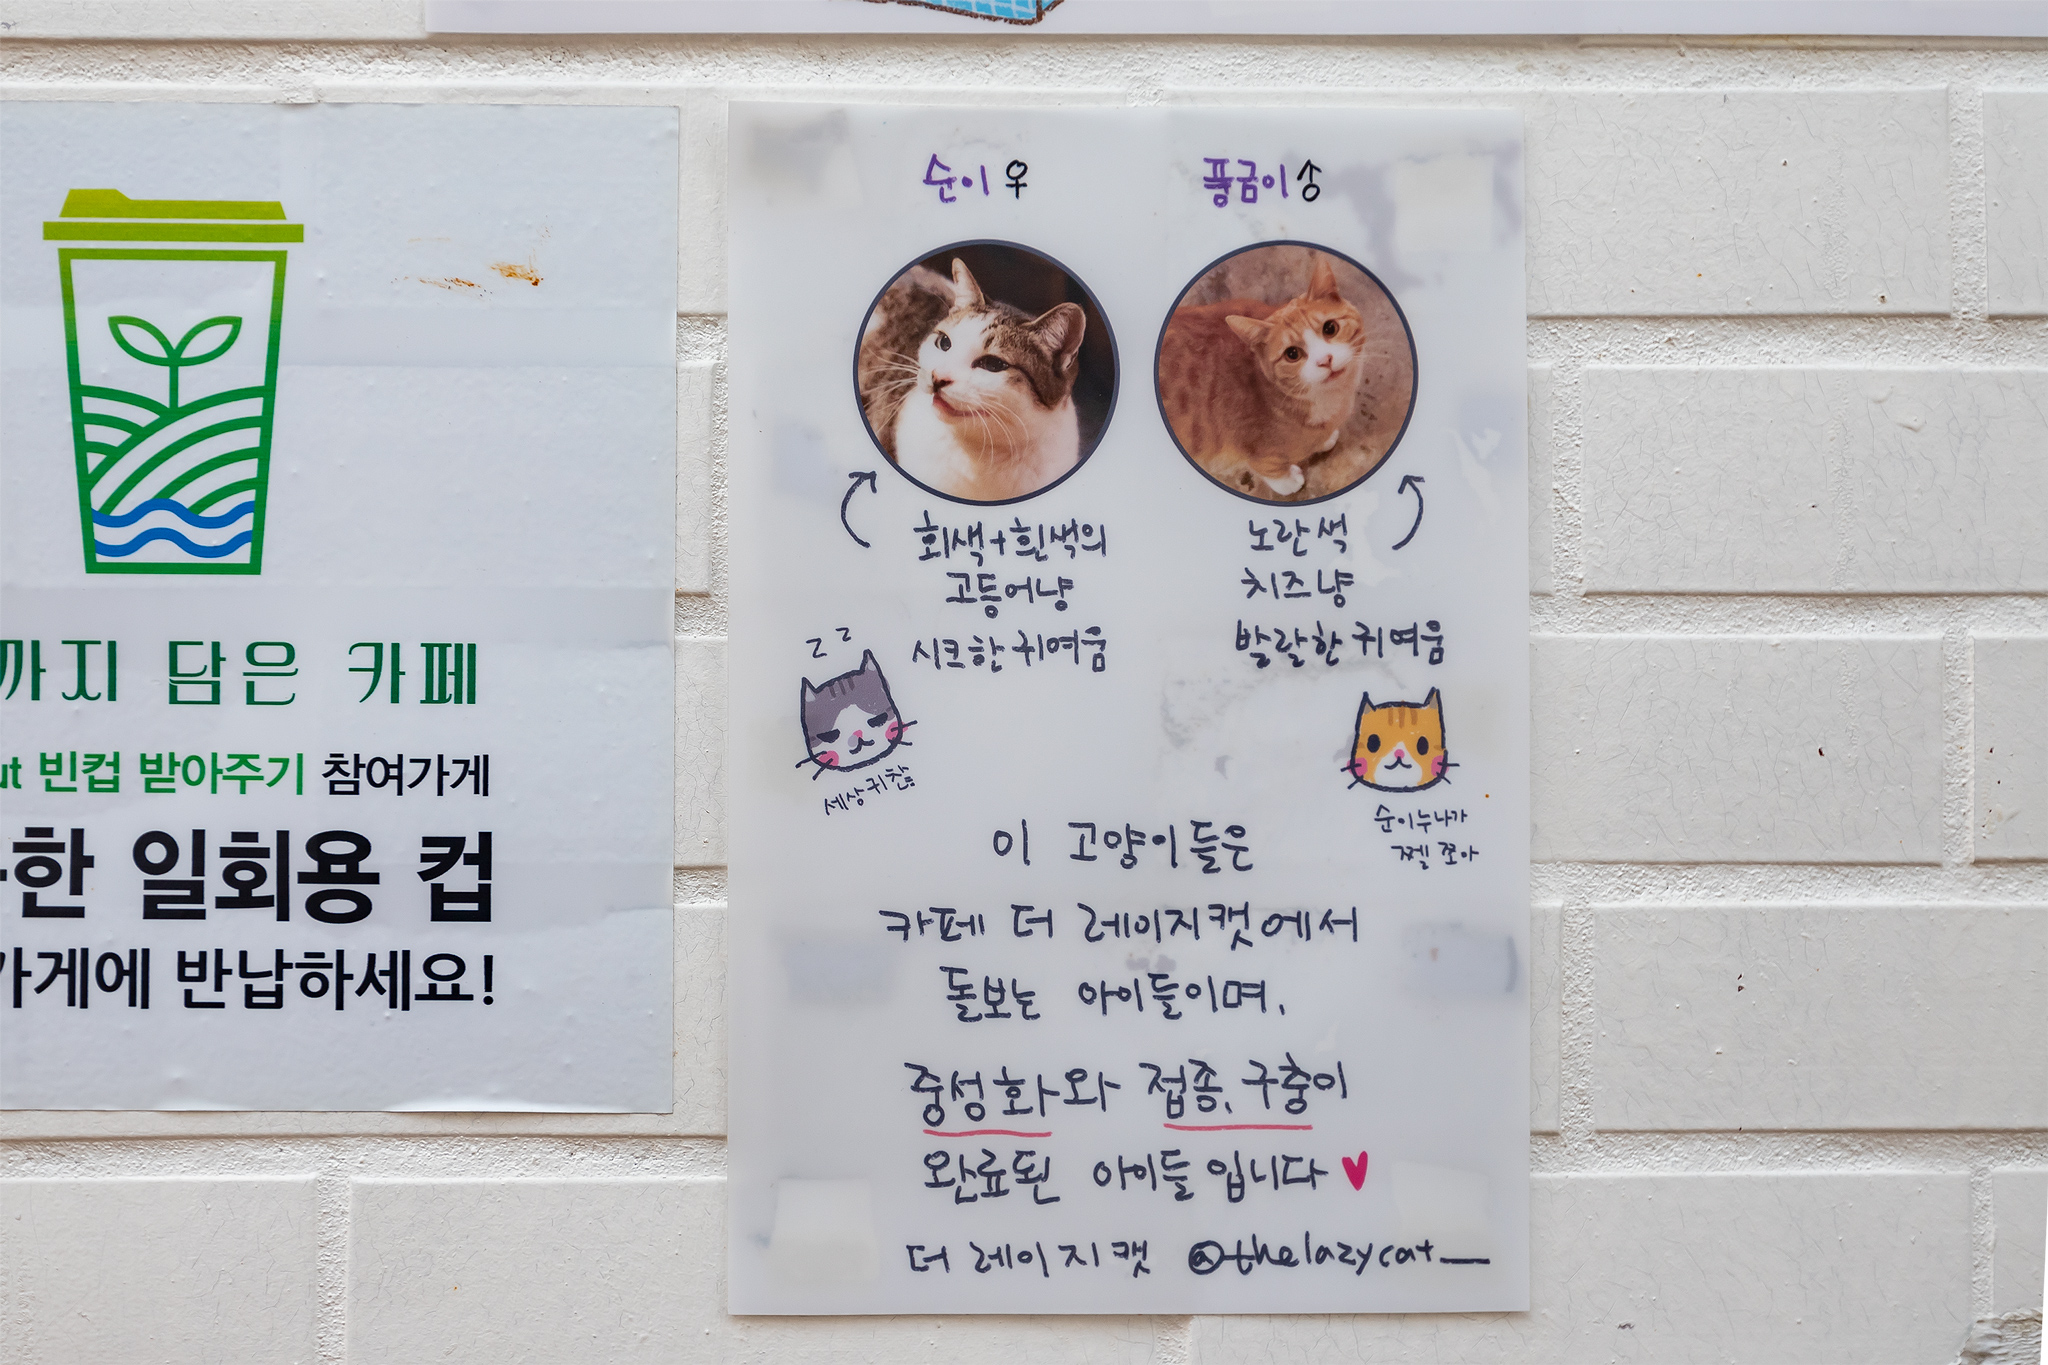 까지 담은 카페
ut 빈컵 받아주기 참여가게
한 일회용 컵
가게에 반납하세요!
순이 ♀
풍금이 ♂
회색+흰색의
고등어냥
시크한 귀여움
노란색
치즈냥
발랄한 귀여움
z z
세상귀찮
순이누나가
쩰 쪼아
이 고양이들은
카페 더 레이지캣에서
돌보는 아이들이며,
중성화와 접종, 구충이
완료된 아이들입니다 ♥
더 레이지캣 @thelazycat__